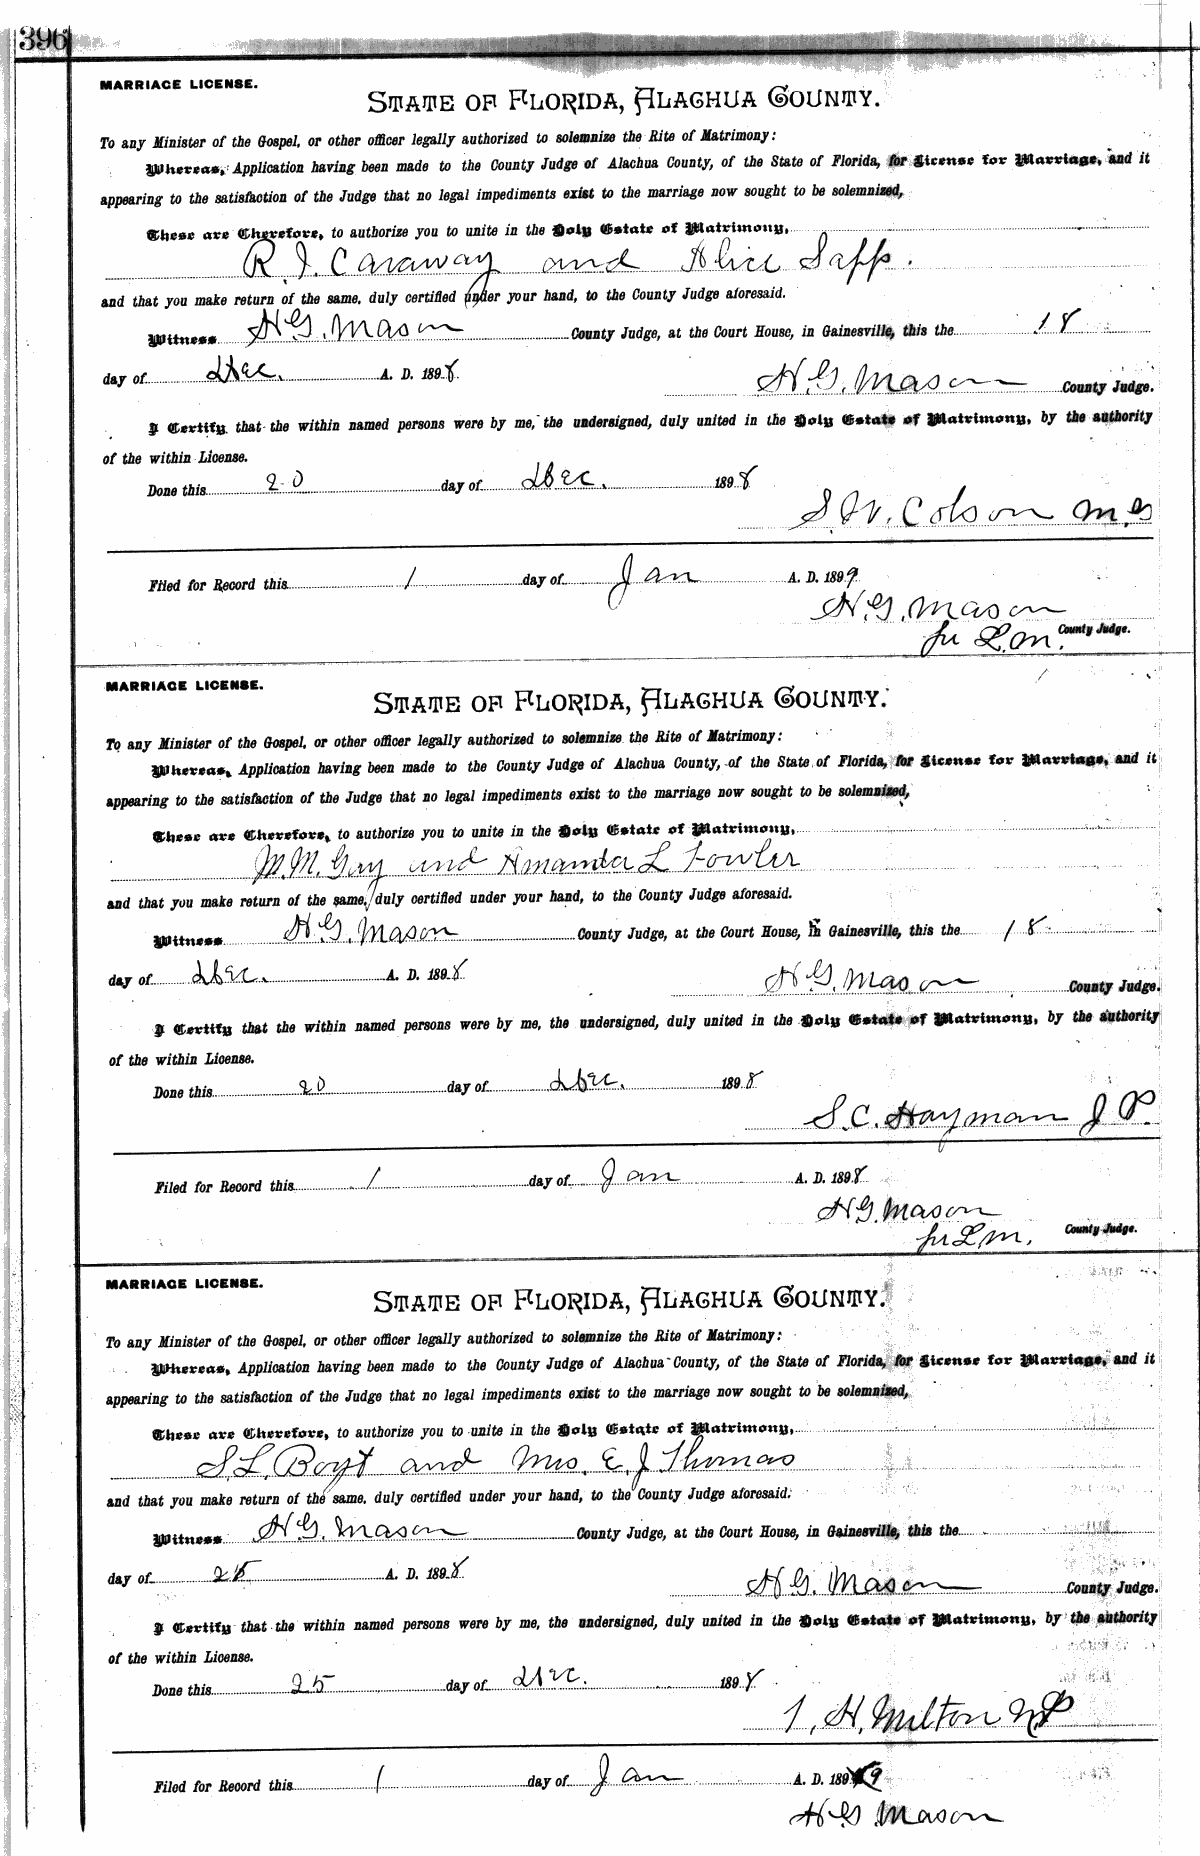 396
MARRIAGE LICENSE.
STATE OF FLORIDA, ALACHUA COUNTY.
To any Minister of the Gospel, or other officer legally authorized to solemnize the Rite of Matrimony:
Whereas, Application having been made to the County Judge of Alachua County, of the State of Florida, for License for Marriage, and it
appearing to the satisfaction of the Judge that no legal impediments exist to the marriage now sought to be solemnized,
These are Therefore, to authorize you to unite in the Holy Estate of Matrimony,
R. J. Caraway and Alice Sapp.
and that you make return of the same, duly certified under your hand, to the County Judge aforesaid.
Witness H.G. Mason County Judge, at the Court House, in Gainesville, this the 18
day of Dec. A. D. 1898.
H.G. Mason County Judge.
I Certify that the within named persons were by me, the undersigned, duly united in the Holy Estate of Matrimony, by the authority
of the within License.
Done this 20 day of Dec. 1898
S. W. Colson M.G
Filed for Record this 1 day of Jan A. D. 1899
H.G. Mason
County Judge.
per L.M.
MARRIAGE LICENSE.
STATE OF FLORIDA, ALACHUA COUNTY.
To any Minister of the Gospel, or other officer legally authorized to solemnize the Rite of Matrimony:
Whereas, Application having been made to the County Judge of Alachua County, of the State of Florida, for License for Marriage, and it
appearing to the satisfaction of the Judge that no legal impediments exist to the marriage now sought to be solemnized,
These are Therefore, to authorize you to unite in the Holy Estate of Matrimony,
M. M. Gay and Amanda L Fowler
and that you make return of the same, duly certified under your hand, to the County Judge aforesaid.
Witness H.G. Mason County Judge, at the Court House, in Gainesville, this the 18
day of Dec. A. D. 1898
H G. Mason County Judge.
I Certify that the within named persons were by me, the undersigned, duly united in the Holy Estate of Matrimony, by the authority
of the within License.
Done this 20 day of Dec. 1898
S. C. Hayman J P.
Filed for Record this 1 day of Jan A. D. 1898
H G. Mason
per L M. County Judge.
MARRIAGE LICENSE.
STATE OF FLORIDA, ALACHUA COUNTY.
To any Minister of the Gospel, or other officer legally authorized to solemnize the Rite of Matrimony:
Whereas, Application having been made to the County Judge of Alachua County, of the State of Florida, for License for Marriage, and it
appearing to the satisfaction of the Judge that no legal impediments exist to the marriage now sought to be solemnized,
These are Therefore, to authorize you to unite in the Holy Estate of Matrimony,
S. L. Boyt and Mrs. E. J Thomas
and that you make return of the same, duly certified under your hand, to the County Judge aforesaid.
Witness H G. Mason County Judge, at the Court House, in Gainesville, this the
day of 25 A. D. 1898
H G. Mason County Judge.
I Certify that the within named persons were by me, the undersigned, duly united in the Holy Estate of Matrimony, by the authority
of the within License.
Done this 25 day of Dec. 1898
H. Milton
Filed for Record this 1 day of Jan A. D. 1899
H G Mason